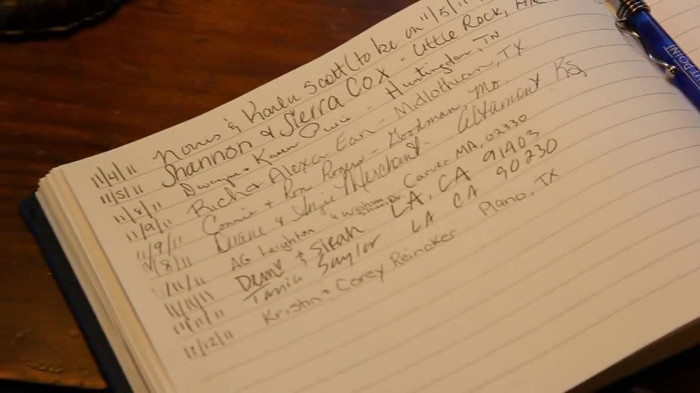 11/4/11 Norris & Karen Scott (to be on 11/5/11
11/5/11 Shannon & Sierra Cox - Little Rock, AR
11/8/11 Dwayne & Karen - Huntingdon, TN
11/9/11 Rich & Alexa Ean - Midlothian, TX
11/9/11 Connie & Ron Rogers - Goodman, Mo.
11/8/11 Duane & Merchant - Altamont KS
11/11/11 AG Leighton Carver MA, 02330
11/11/11 Demi & Steph LA, CA 91403
11/11/11 Tania Saylor LA CA 90230
11/12/11 Kristin & Corey Reinaker Plano, TX
POINT